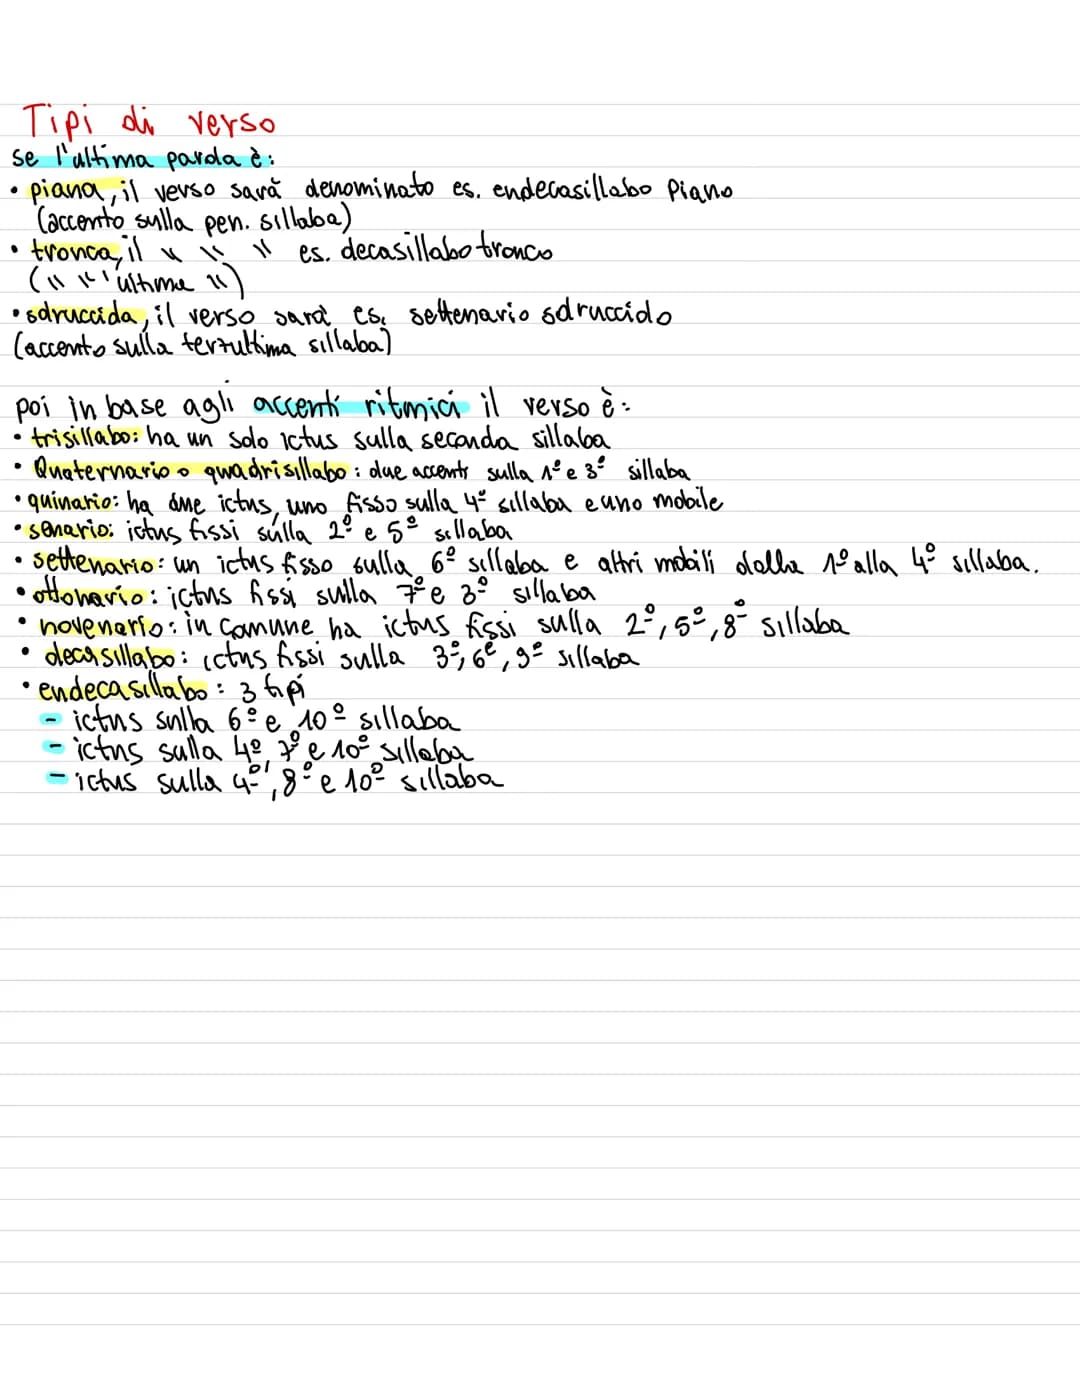 Tipi di verso
se l'ultima parola è:
• piana, il verso sarà denominato es. endecasillabo piano
(accento sulla pen. sillaba)
• tronca, il " " " es. decasillabo tronco
(" " l'ultima ")
• sdrucciola, il verso sarà es. settenario sdrucciolo
(accento sulla terzultima sillaba)
poi in base agli accenti ritmici il verso è:
• trisillabo: ha un solo ictus sulla seconda sillaba
• Quaternario o quadrisillabo: due accenti sulla 1º e 3º sillaba
• quinario: ha due ictus, uno fisso sulla 4º sillaba e uno mobile
• senario: ictus fissi sulla 2º e 5º sillaba
• settenario: un ictus fisso sulla 6º sillaba e altri mobili dalla 1º alla 4º sillaba.
• ottonario: ictus fissi sulla 7º e 3º sillaba
• novenario: in comune ha ictus fissi sulla 2º, 5º, 8º sillaba
• decasillabo: ictus fissi sulla 3º, 6º, 9º sillaba
• endecasillabo: 3 tipi
- ictus sulla 6º e 10º sillaba
- ictus sulla 4º, 7º e 10º sillaba
- ictus sulla 4º, 8º e 10º sillaba